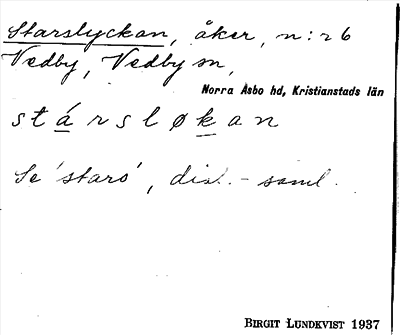 Starslyckan, åker, n:r 26
Vedby, Vedby sn,
Norra Åsbo hd, Kristianstads län
stársløkan
Se 'stars', dial.-saml.
BIRGIT LUNDKVIST 1937